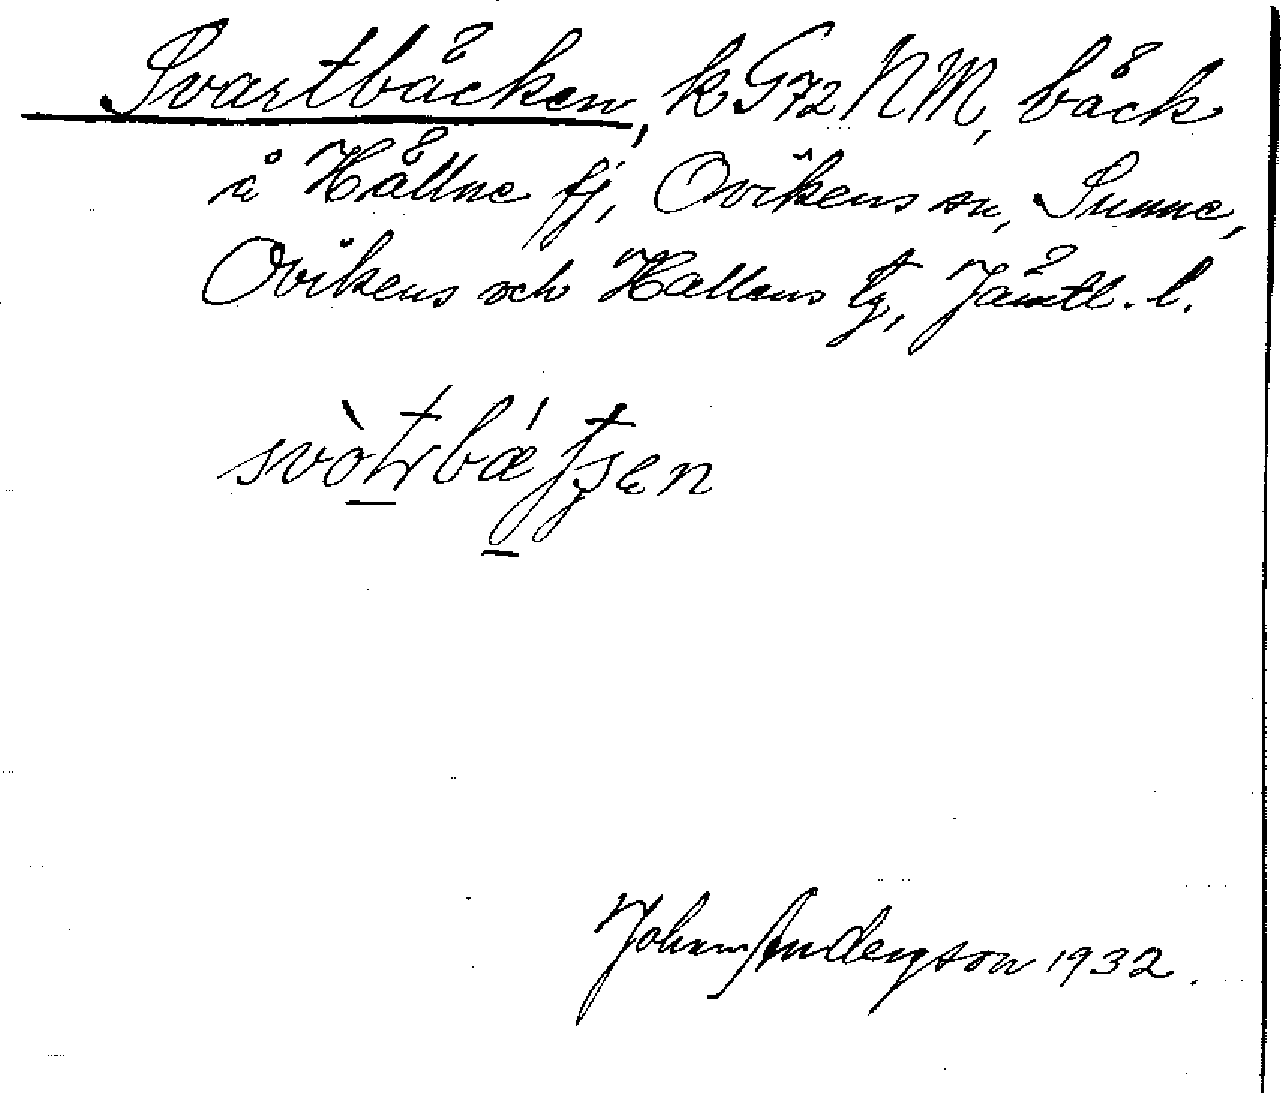 Svartbäcken, k G72 NM, bäck
å Hållne fj, Ovikens sn, Sunne,
Ovikens och Hallens tg, Jämtl. l.
Johan Anderson 1932.